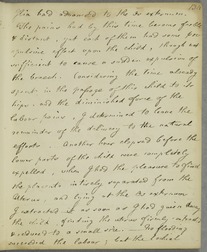 this had descended to the os externum.
The pains had by this time become feeble
& distant, yet each of them had some pro-
pulsive effect upon the child, though not
sufficient to cause a sudden expulsion of
the breech. Considering the time already
spent in the passage of this child to its
hips, and the diminished force of the
labour pains, I determined to leave the
remainder of the delivery to the natural
efforts. Another hour elapsed before the
lower parts of the child were completely
expelled, when I had the pleasure to find
the placenta intirely separated from the
Uterus, and lying at the Os externum
I extracted it as soon as I had given away
the child, finding the uterus firmly contracted
& reduced to a small size. No flooding
succeeded the labour; but the lochial